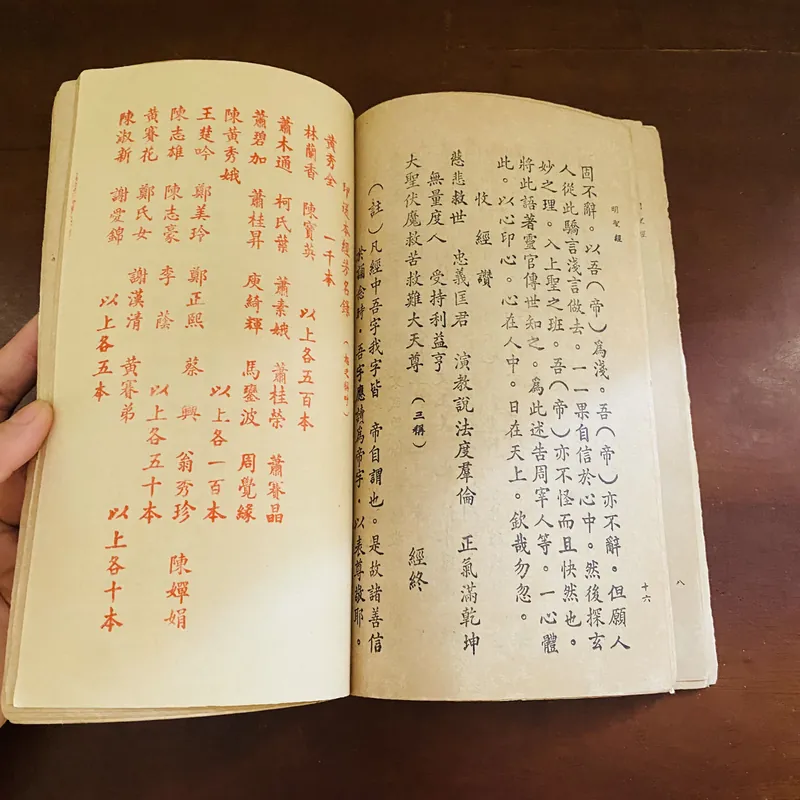 明聖經
十六
八
固不辭。以吾(帝)爲淺。吾(帝)亦不辭。但願人
人從此驕言淺言做去。一一果自信於心中。然後探玄
妙之理。入上聖之班。吾(帝)亦不怪而且快然也。
將此語著靈官傳世知之。爲此述告周宰人等。一心體
此。以心印心。心在人中。日在天上。欽哉勿忽。
收經讚
慈悲救世 忠義匡君 演教說法度羣倫 正氣滿乾坤
無量度人 受持利益亨
大聖伏魔救苦救難大天尊 (三稱)
經終
(註)凡經中吾字我字皆 帝自謂也。是故諸善信
於誦念時。吾字應讀爲帝字。以表尊敬耶。
印送本經芳名錄
黃秀全 一千本
林蘭香 陳寶英 以上各五百本
蕭木通 柯氏葉 蕭素娥 蕭桂榮 蕭賽晶
蕭碧加 蕭桂昇 庾綺輝 馬鑾波 周覺緣
陳黃秀娥 以上各一百本
王楚吟 鄭美玲 鄭正熙 蔡興 翁秀珍 陳嬋娟
陳志雄 陳志豪 李蔭 以上各五十本
黃賽花 鄭氏女 謝漢清 黃賽弟 以上各十本
陳淑新 謝愛錦 以上各五本